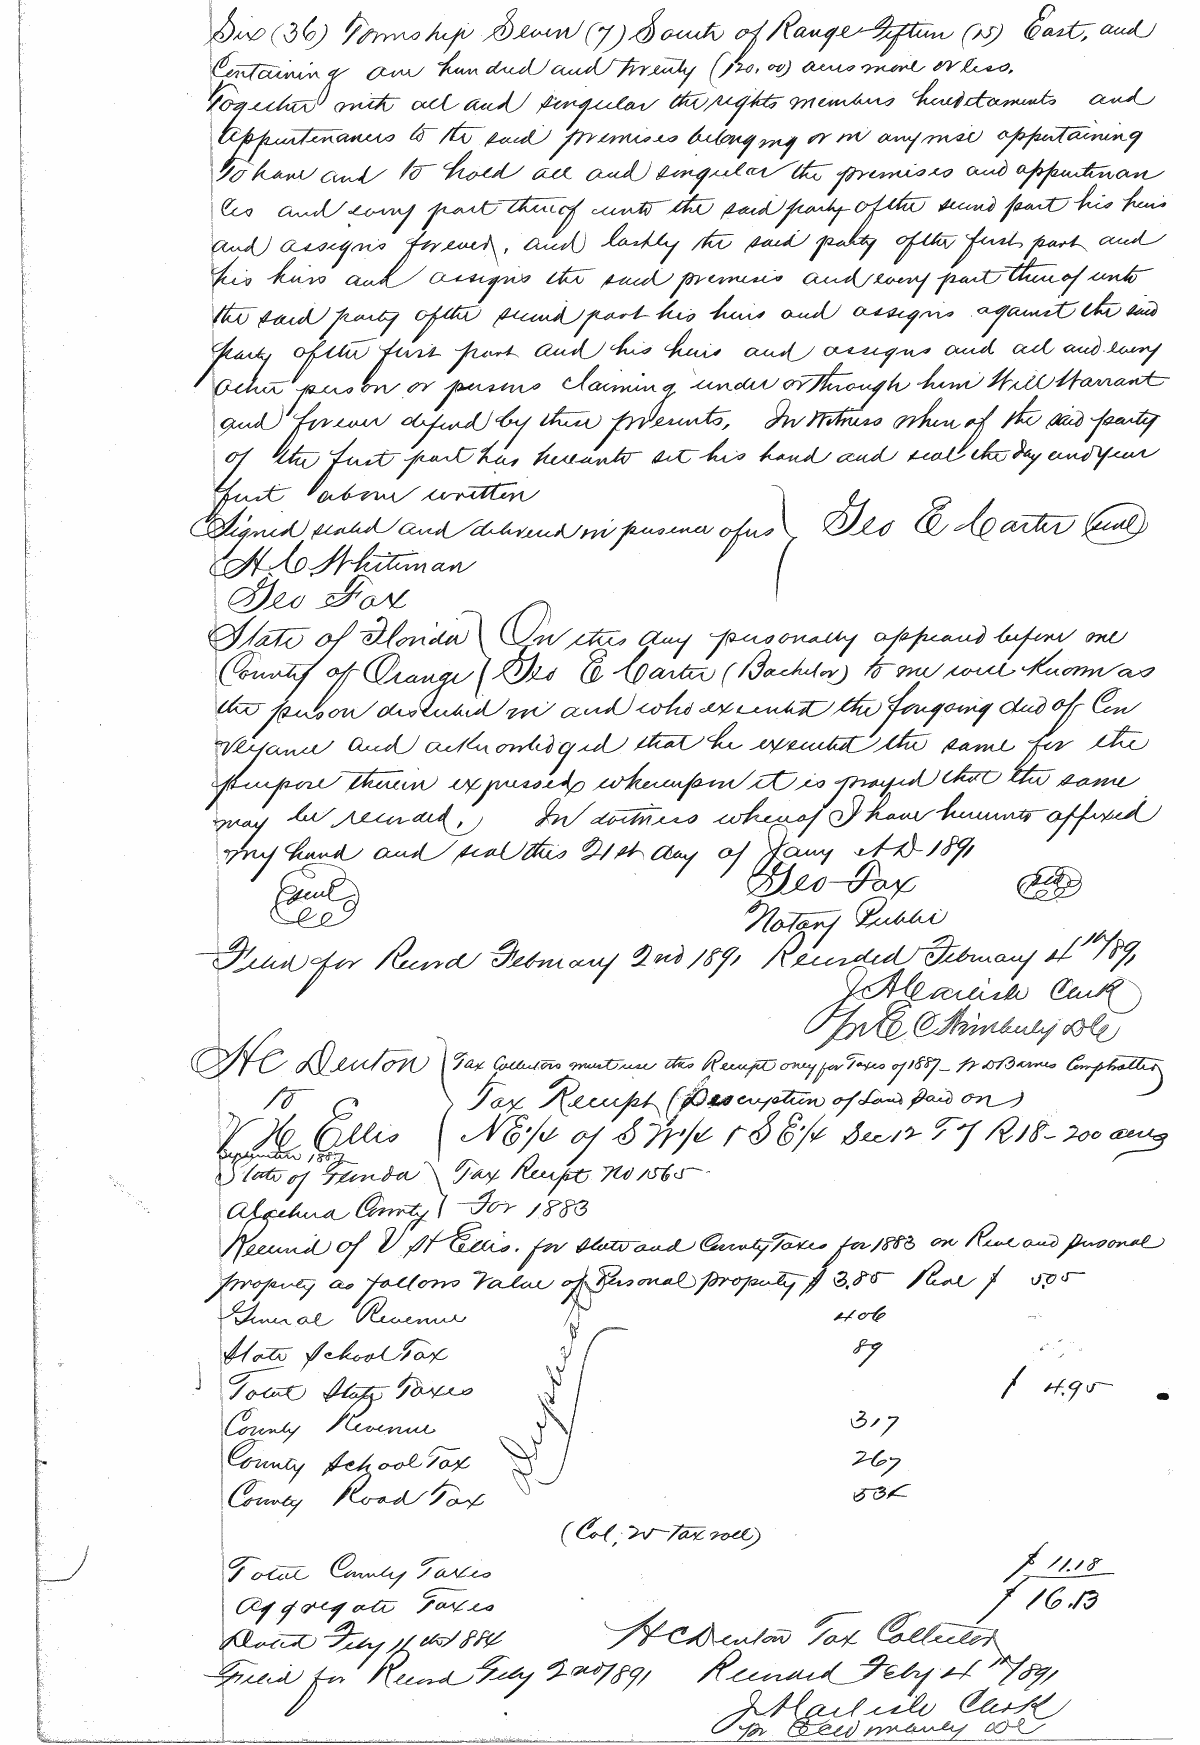 Six (36) Township Seven (7) South of Range Fifteen (15) East, and
Containing one hundred and twenty (120.00) acres more or less.
Together with all and singular the rights members hereditaments and
appurtenances to the said premises belonging or in anywise appertaining
To have and to hold all and singular the premises and appurtenan
ces and every part thereof unto the said party of the second part his heirs
and assigns forever, and lastly the said party of the first part and
his heirs and assigns the said premises and every part thereof unto
the said party of the second part his heirs and assigns against the said
party of the first part and his heirs and assigns and all and every
other person or persons claiming under or through him Will Warrant
and forever defend by these presents. In Witness whereof the said party
of the first part has hereunto set his hand and seal the day and year
first above written
Signed sealed and delivered in presence of us } Geo E Carter (seal)
H C Whiteman
Geo Fox
State of Florida } On this day personally appeared before me
County of Orange } Geo E Carter (Bachelor) to me well known as
the person described in and who executed the foregoing deed of Con
veyance and acknowledged that he executed the same for the
purpose therein expressed whereupon it is prayed that the same
may be recorded. In witness whereof I have hereunto affixed
my hand and seal this 21st day of Jany A D 1891
(Seal) Geo Fox (seal)
Notary Public
Filed for Record February 2nd 1891 Recorded February 4th 1891
J A Carlisle Clerk
pr E C DC
H C Denton } Tax Collectors must use this Receipt only for Taxes of 1887 - W D Barnes Comptroller
to } Tax Receipt (Description of Land Paid on)
V H Ellis } NE 1/4 of SW 1/4 + SE 1/4 Sec 12 T 7 R 18 - 200 acres
September 1887
State of Florida } Tax Receipt No 1565
Alachua County } For 1883
Received of V H Ellis. for State and County Taxes for 1883 on Real and personal
property as follows Value of Personal property $ 3.85 Real $ 505
General Revenue 406
State School Tax 89
Total State Taxes $ 4.95
County Revenue 317
County School Tax 267
County Road Tax 534
Duplicate
(Col, 20 Tax roll)
Total County Taxes $ 11.18
Aggregate Taxes $ 16.13
Dated Feby 11 1884 H C Denton Tax Collector
Filed for Record Feby 2nd 1891 Recorded Feby 4th 1891
J A Carlisle Clerk
pr DC